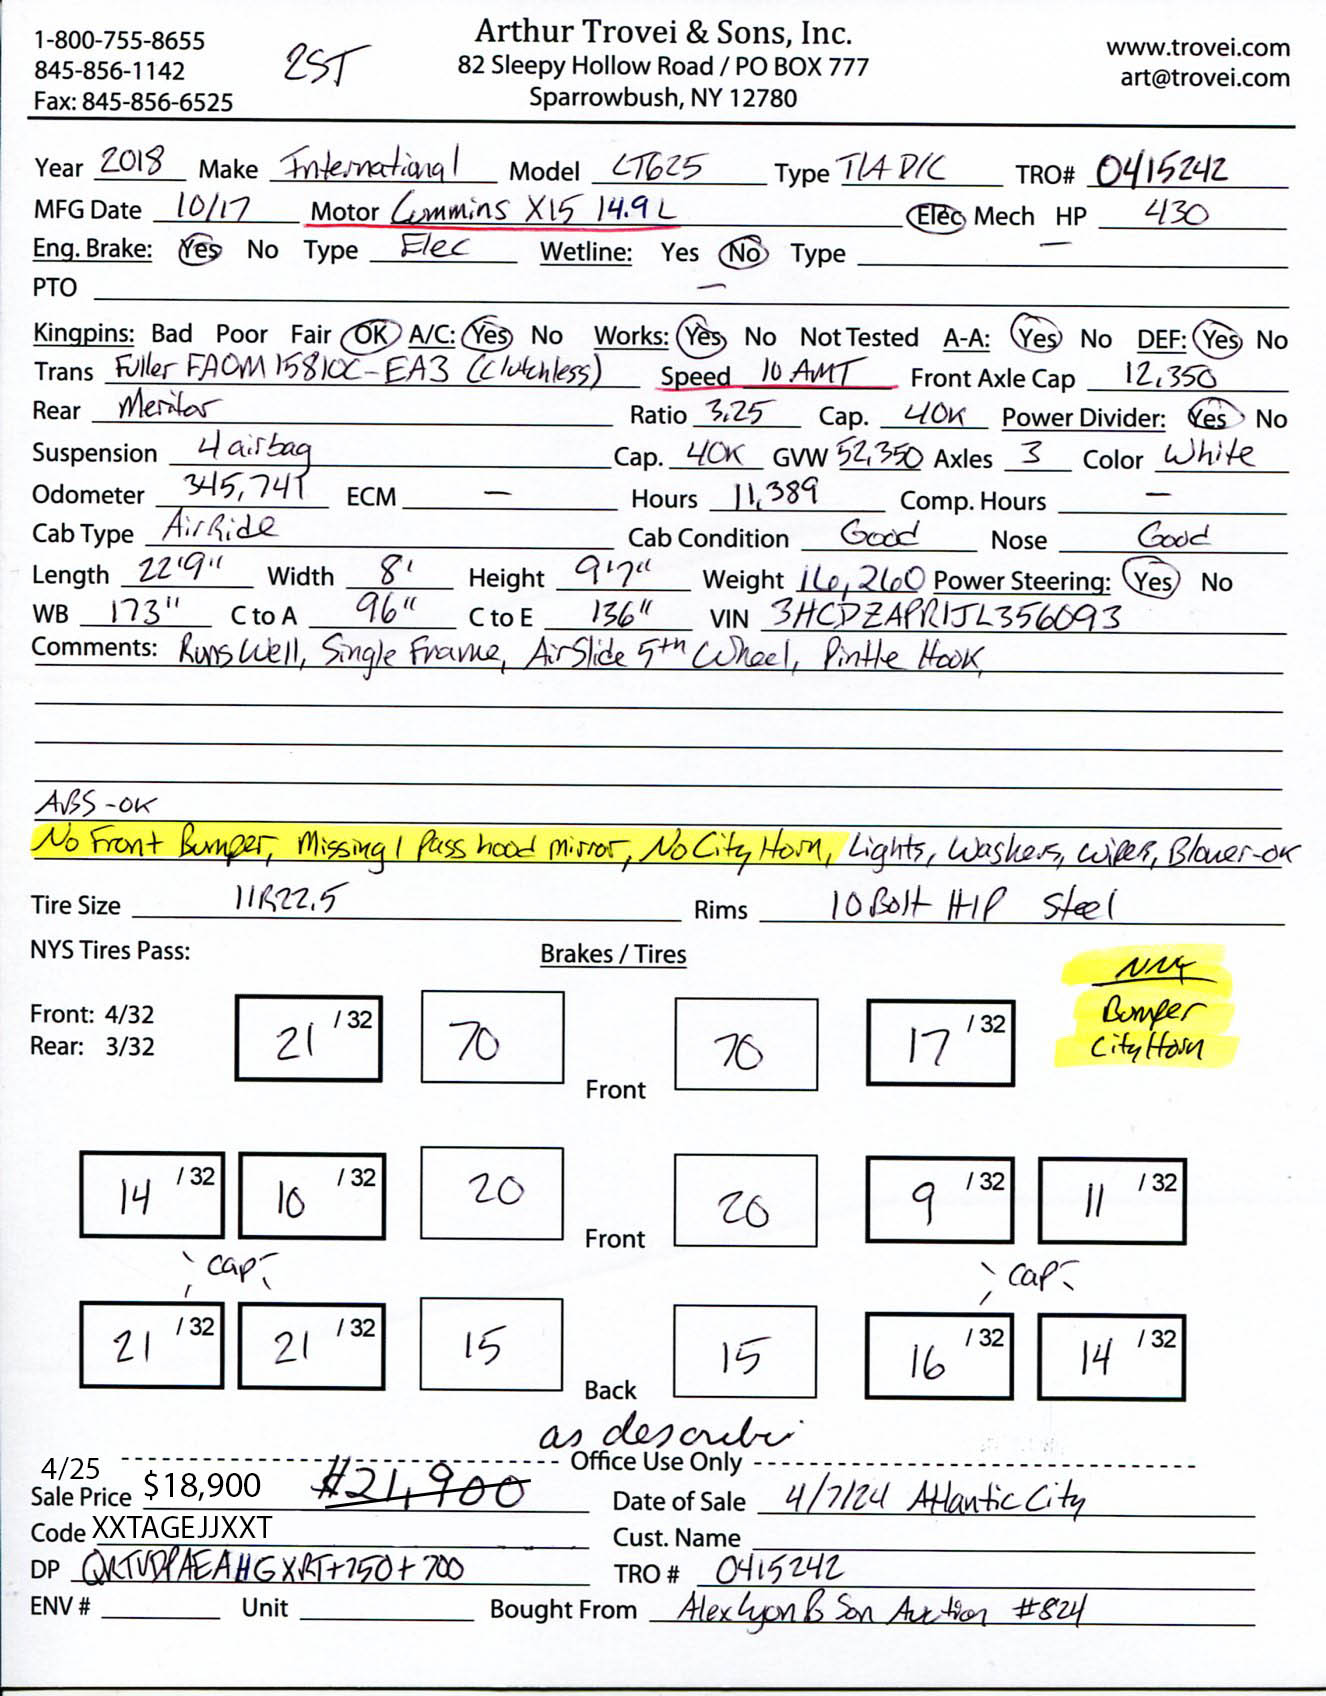 1-800-755-8655
845-856-1142
Fax: 845-856-6525
2ST
Arthur Trovei & Sons, Inc.
82 Sleepy Hollow Road / PO BOX 777
Sparrowbush, NY 12780
www.trovei.com
art@trovei.com
Year 2018 Make International Model LT625 Type T/A D/C TRO# 0415242
MFG Date 10/17 Motor Cummins X15 14.9 L Elec Mech HP 430
Eng. Brake: Yes No Type Elec Wetline: Yes No Type —
PTO —
Kingpins: Bad Poor Fair OK A/C: Yes No Works: Yes No Not Tested A-A: Yes No DEF: Yes No
Trans Fuller FAOM15810C-EA3 (Clutchless) Speed 10 AMT Front Axle Cap 12,350
Rear Meritor Ratio 3.25 Cap. 40K Power Divider: Yes No
Suspension 4 airbag Cap. 40K GVW 52,350 Axles 3 Color White
Odometer 345,741 ECM — Hours 11,389 Comp. Hours —
Cab Type AirRide Cab Condition Good Nose Good
Length 22'9" Width 8' Height 9'7" Weight 16,260 Power Steering: Yes No
WB 173" C to A 96" C to E 136" VIN 3HCDZAPR1JL356093
Comments: Runs Well, Single Frame, AirSlide 5th Wheel, Pintle Hook,
ABS-OK
No Front Bumper, Missing 1 Pass hood mirror, No City Horn, Lights, Washers, Wipers, Blower-OK
Tire Size 11R22.5 Rims 10 Bolt H/P Steel
NYS Tires Pass: Brakes / Tires
Front: 4/32
Rear: 3/32
21 /32 70 Front 70 17 /32
Bumper
City Horn
14 /32 10 /32 20 Front 20 9 /32 11 /32
cap cap
21 /32 21 /32 15 Back 15 16 /32 14 /32
as describe
Office Use Only
4/25
Sale Price $18,900 $21,900 Date of Sale 4/7/24 Atlantic City
Code XXTAGEJJXXT Cust. Name
DP QRTVDPAEAHGXRT+750+700 TRO # 0415242
ENV # Unit Bought From Alex Lyon & Son Auction #824